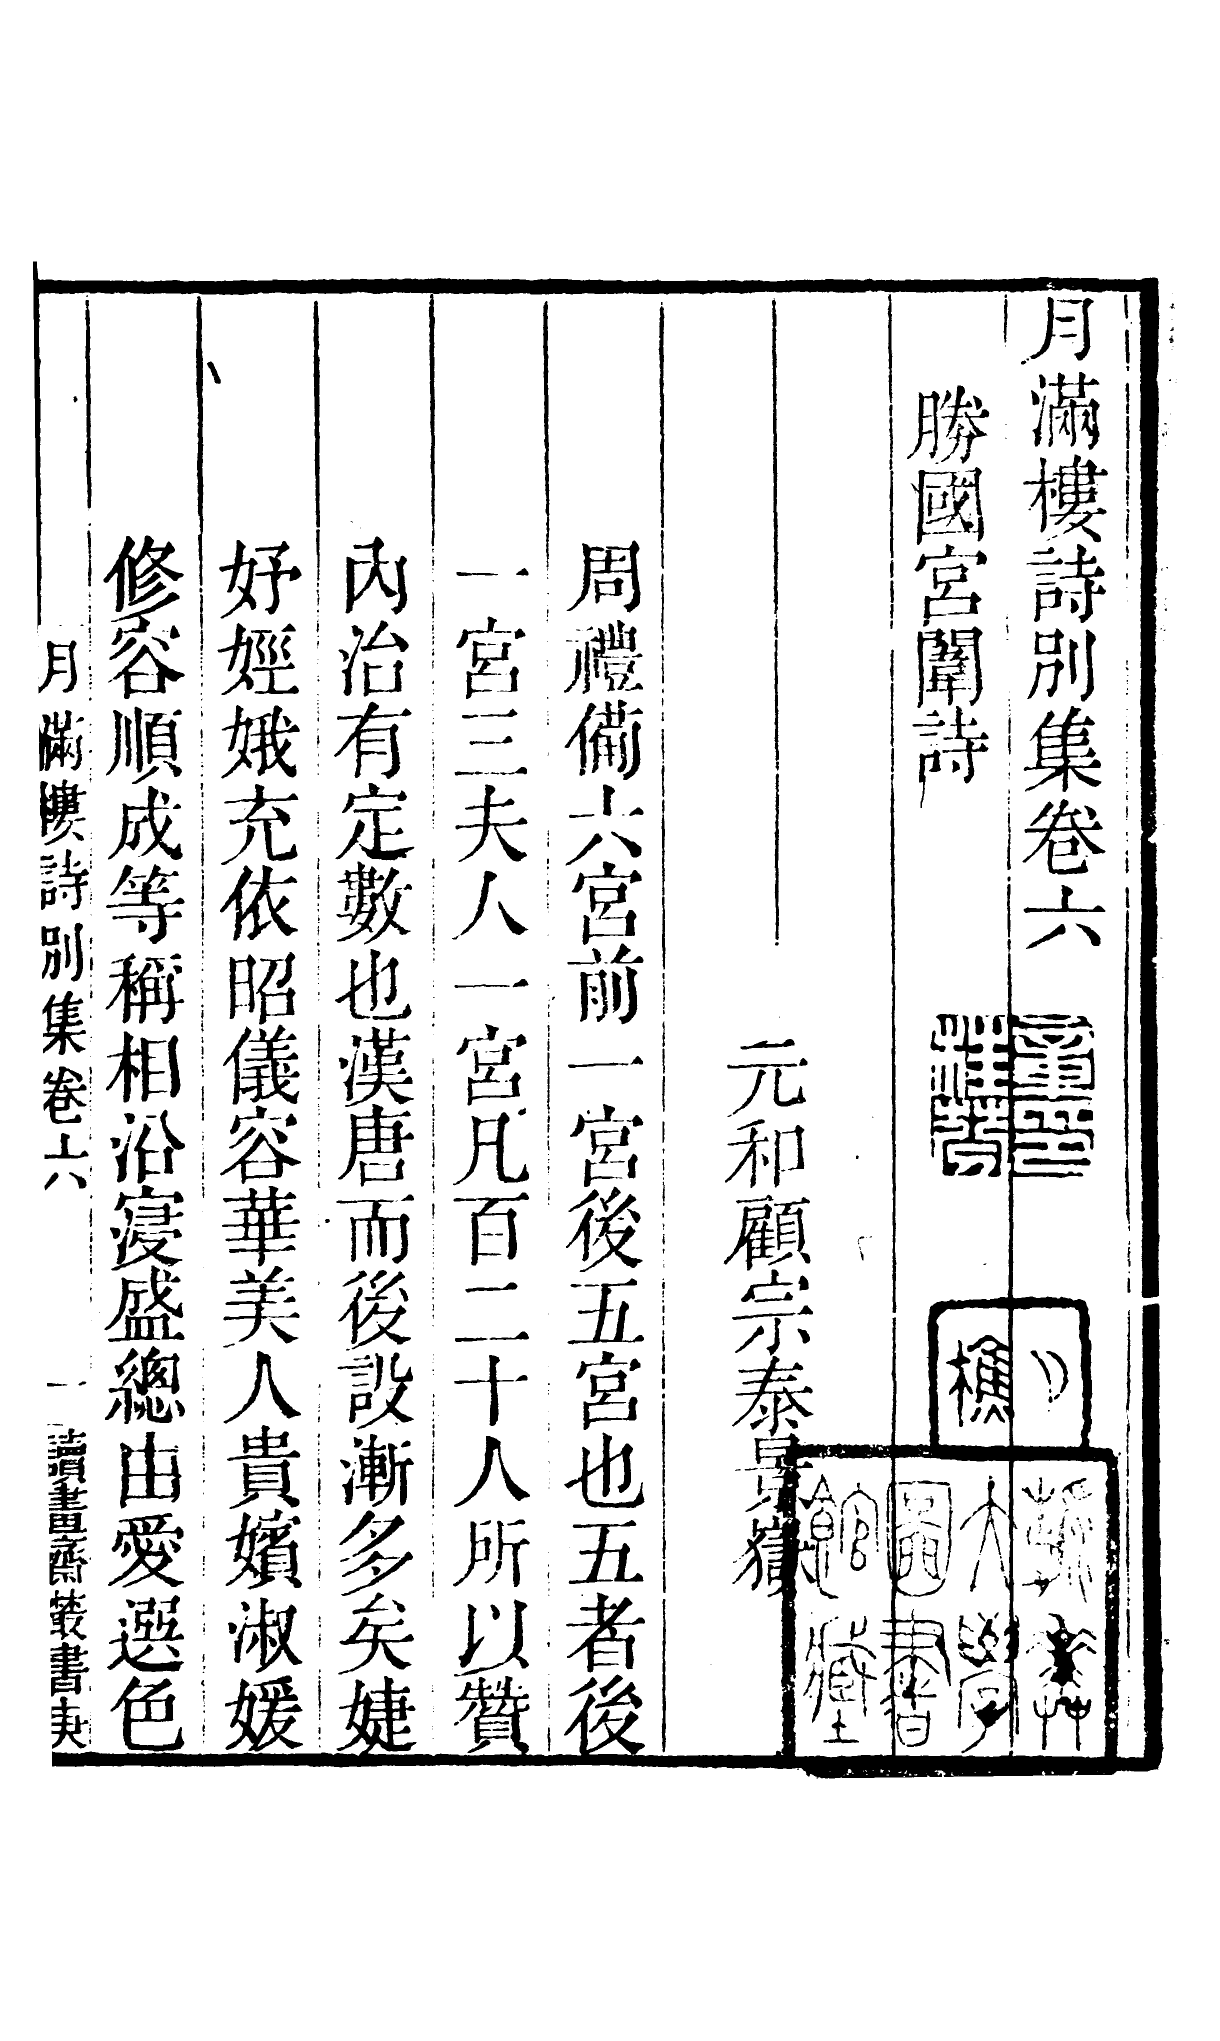 月滿樓詩別集卷六
勝國宮闈詩
元和顧宗泰景嶽
周禮備六宮前一宮後五宮也五者後
一宮三夫人一宮凡百二十人所以贊
內治有定數也漢唐而後設漸多矣婕
妤娙娥充依昭儀容華美人貴嬪淑媛
修容順成等稱相沿寖盛總由愛選色
月滿樓詩別集卷六
一
讀畫齋叢書庚
大學
圖書
館藏